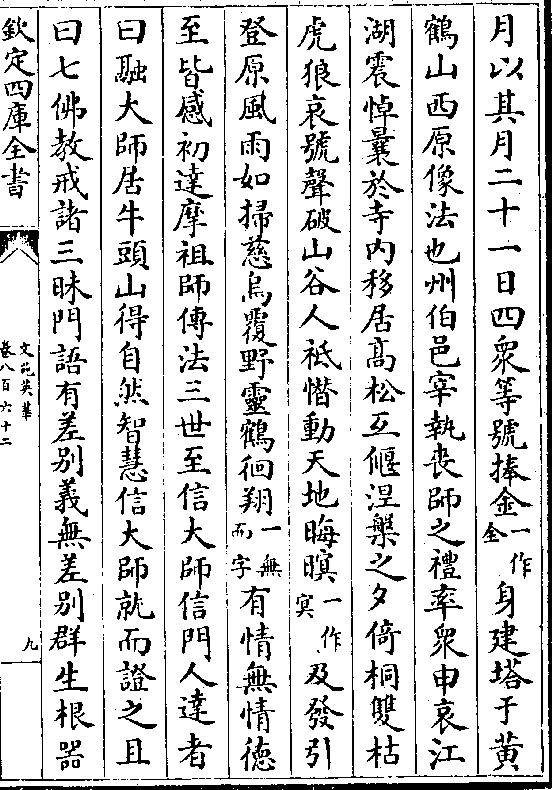 月以其月二十一日四衆等號捧金一作全身建塔于黄
鶴山西原像法也州伯邑宰執喪師之禮率衆申哀江
湖震悼曩於寺内移居髙松互偃涅槃之夕倚桐雙枯
虎狼哀號聲破山谷人祗憯動天地晦暝一作冥及發引
登原風雨如掃慈烏覆野靈鶴徊翔一無而字有情無情德
至皆感初達摩祖師傳法三世至信大師信門人達者
曰融大師居牛頭山得自然智慧信大師就而證之且
曰七佛教戒諸三昧門語有差别義無差别群生根器
欽定四庫全書
文苑英華
卷八百六十二
九